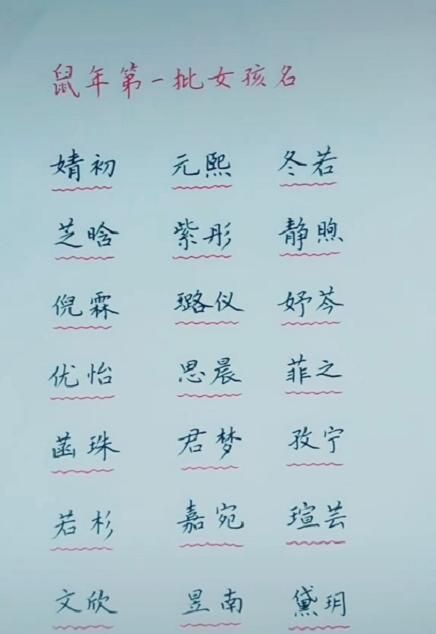 鼠年第一批女孩名
婧初 元熙 冬若
芝晗 紫彤 静煦
倪霖 璐仪 妤芩
优怡 思晨 菲之
菡珠 君梦 孜宁
若杉 嘉宛 瑄芸
文欣 昱南 黛玥